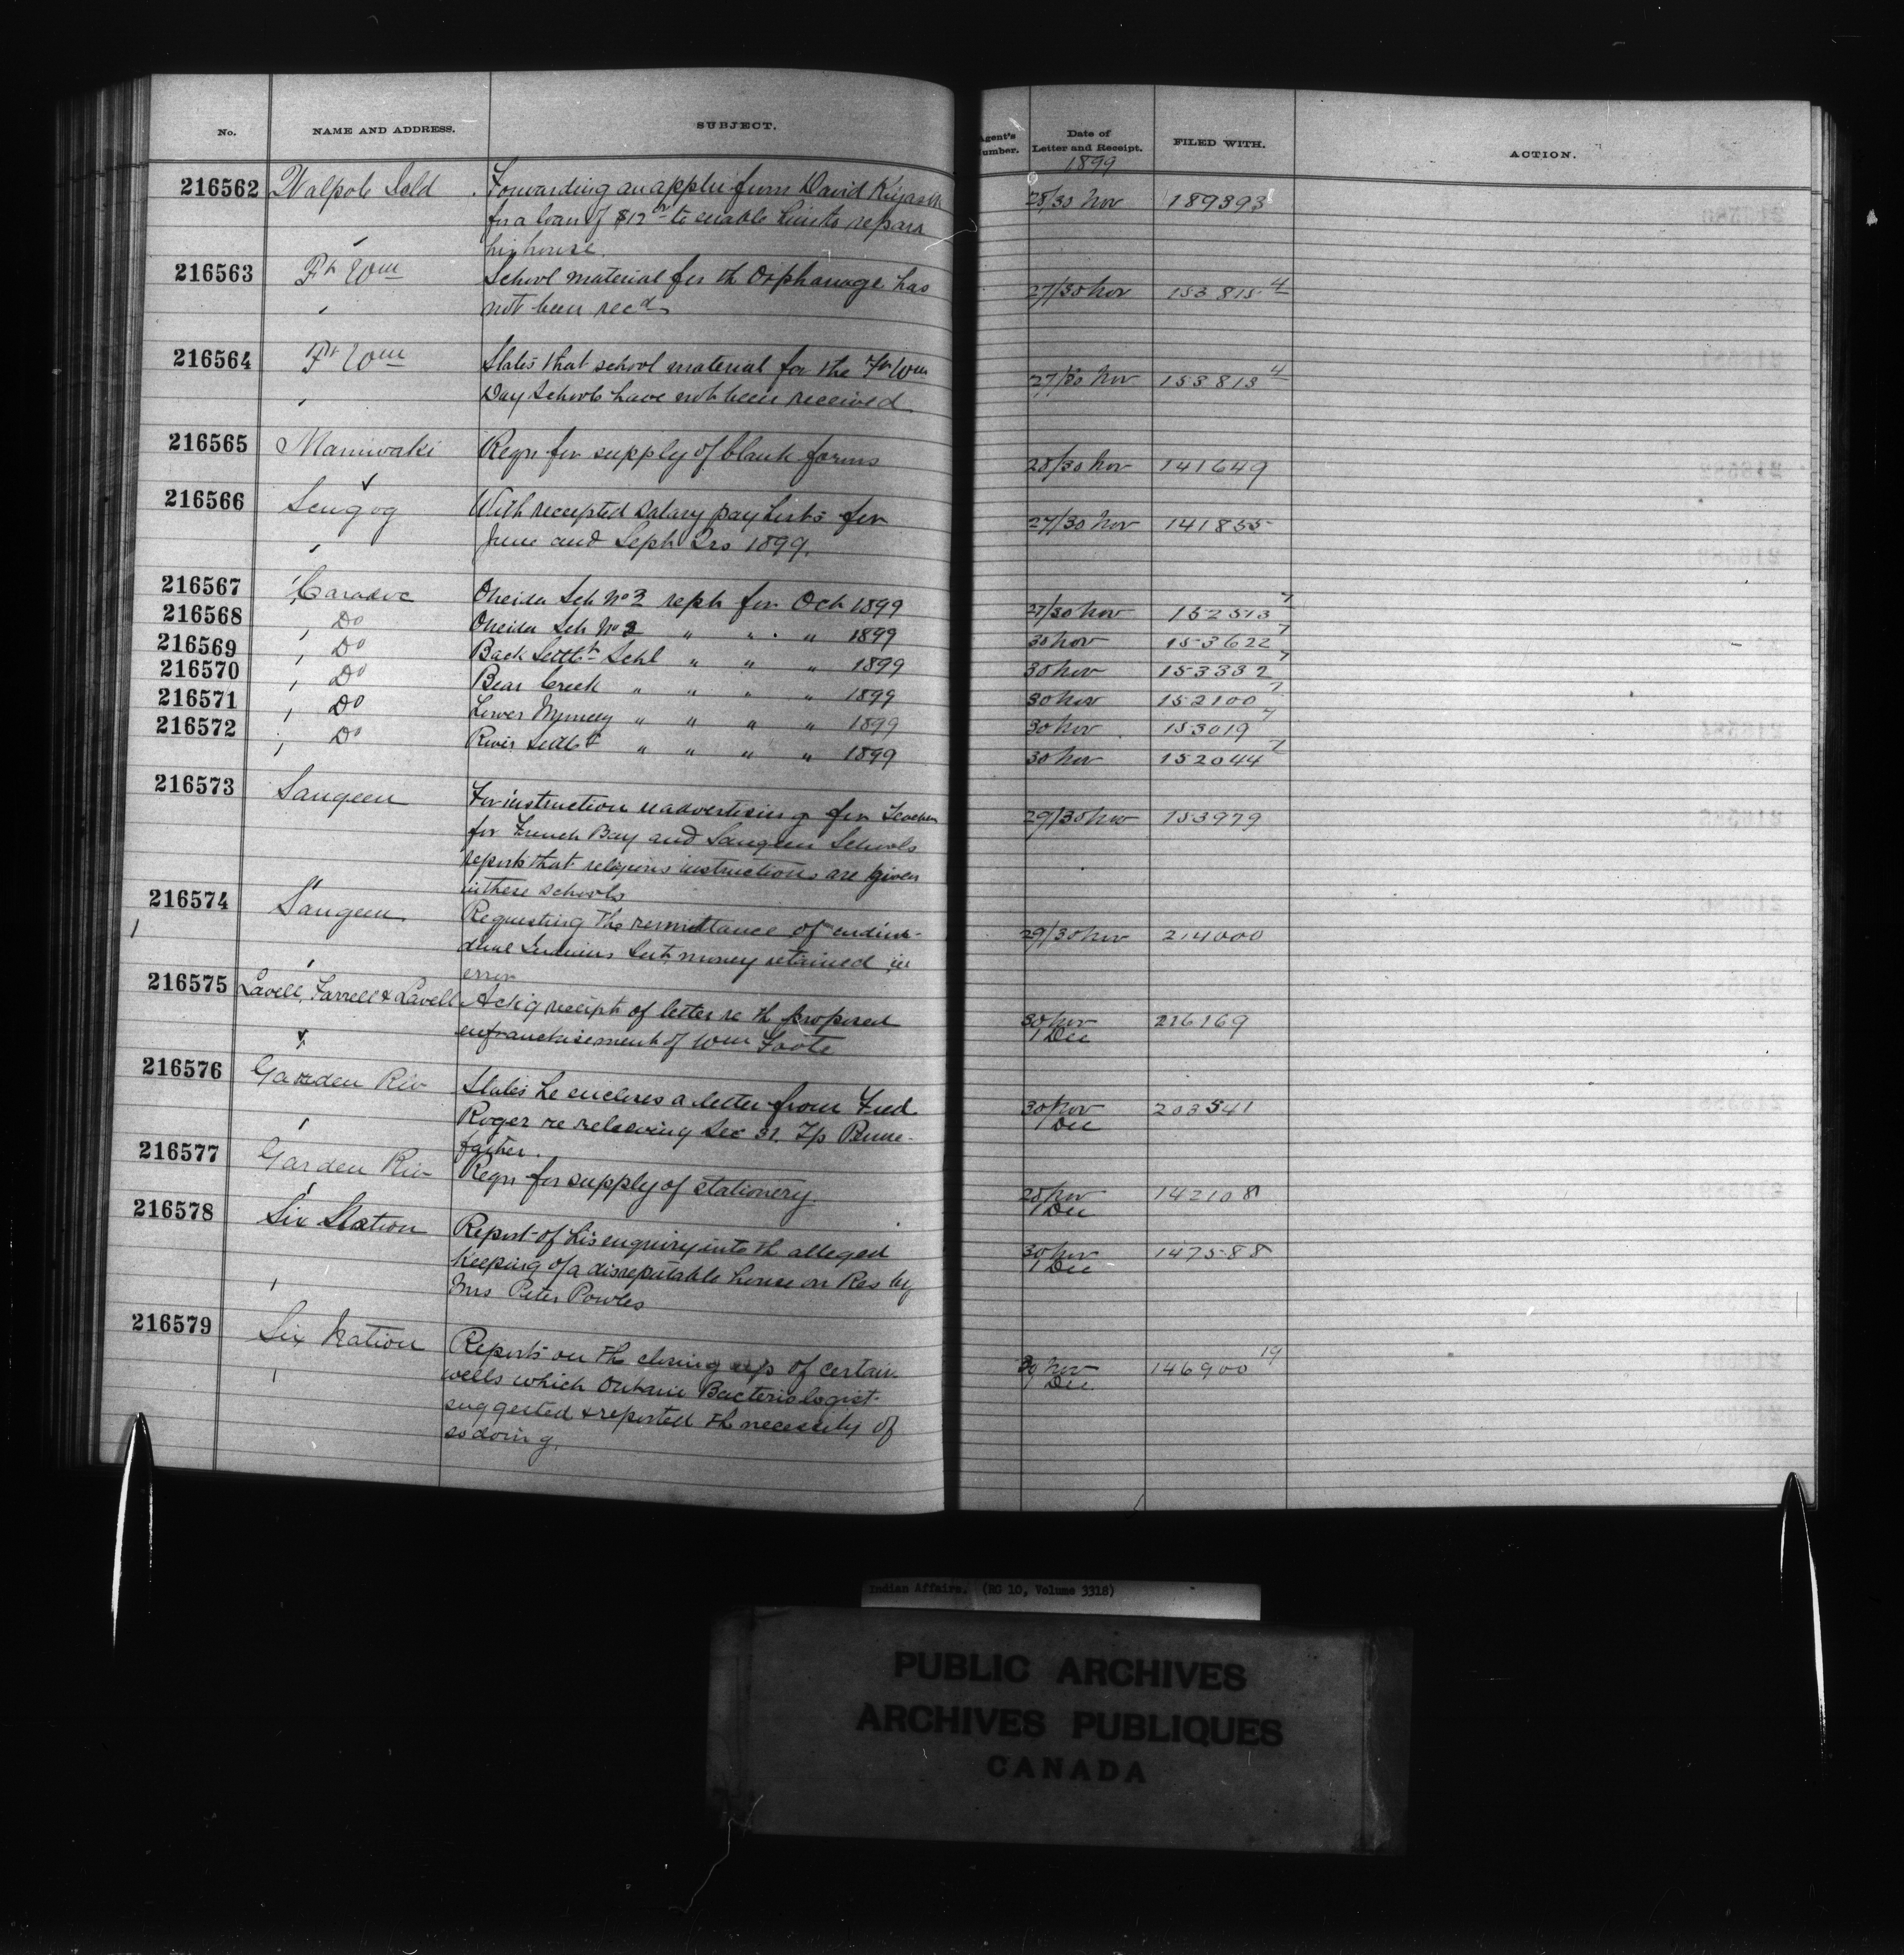 No. NAME AND ADDRESS. SUBJECT. Agent's Number. Date of Letter and Receipt. FILED WITH. ACTION.
1899
216562 Walpole Isld Forwarding an applic from David 28/30 Nov 189393
for a loan of $12 to enable him to repair
his house
216563 Ft Wm School material for th Orphanage has 27/30 Nov 153815 4
not been recd
216564 Ft Wm States that school material for the Ft Wm 27/30 Nov 153813 4
Day Schools have not been received
216565 Maniwaki Reqn for supply of blank forms 28/30 Nov 141649
216566 Scugog With receipted salary pay lists for 27/30 Nov 141855
June and Sept Qrs 1899.
216567 Caradoc Oneida Sch No 2 rept for Oct 1899 27/30 Nov 152513 7
216568 Do Oneida Sch No 3 " " " 1899 30 Nov 153622 7
216569 Do Back Settlt Schl " " " 1899 30 Nov 153332 7
216570 Do Bear Creek " " " " 1899 30 Nov 152100 7
216571 Do Lower Muncey " " " " 1899 30 Nov 153019 7
216572 Do River Settlt " " " " 1899 30 Nov 152044 7
216573 Saugeen For instruction re advertising for Teacher 29/30 Nov 153979
for French Bay and Saugeen Schools
reports that religious instructions are given
in these schools
216574 Saugeen Requesting the remittance of indivi- 29/30 Nov 214000
dual Indians Int. money retained in
error
216575 Lavell, Farrell & Lavell Ack'g receipt of letter re th proposed 30 Nov 216169
enfranchisement of Wm Foote 1 Dec
216576 Garden Riv States he encloses a letter from Fred 30 Nov 203541
Roger re releasing Sec 31. T/p Penne- 1 Dec
father.
216577 Garden Riv Reqn for supply of stationery. 28 Nov 142108
1 Dec
216578 Six Nation Report of his enquiry into th alleged 30 Nov 147588
keeping of a disreputable house on Res by 1 Dec
Mrs Peter Powles
216579 Six Nation Reports on the closing up of certain 30 Nov 146900 19
wells which Ontario Bacteriologist 1 Dec
suggested & reported the necessity of
so doing.
Indian Affairs. (RG 10, Volume 3318)
PUBLIC ARCHIVES
ARCHIVES PUBLIQUES
CANADA